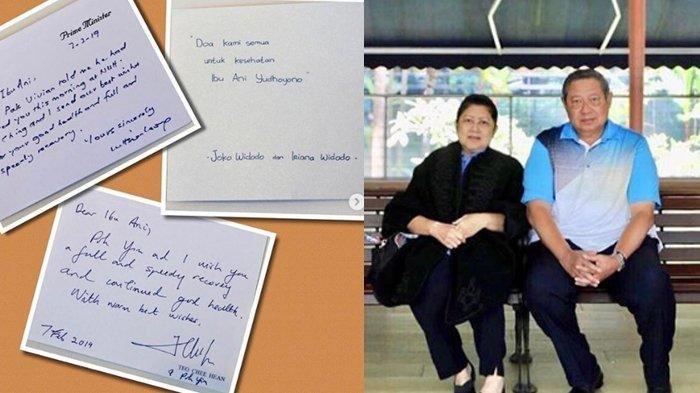 Prime Minister
7-2-19
Ibu Ani,
Pak Vivian told me he had
you this morning at NUH.
Ching and I send our best wishes
for your good health and full and
speedy recovery.
Yours sincerely
"Doa kami semua
untuk kesehatan
Ibu Ani Yudhoyono"
- Joko Widodo dan Iriana Widodo -
Dear Ibu Ani,
Poh Yim and I wish you
a full and speedy recovery
and continued good health.
With warm best wishes,
7 Feb 2019
TEO CHEE HEAN
& Poh Yim